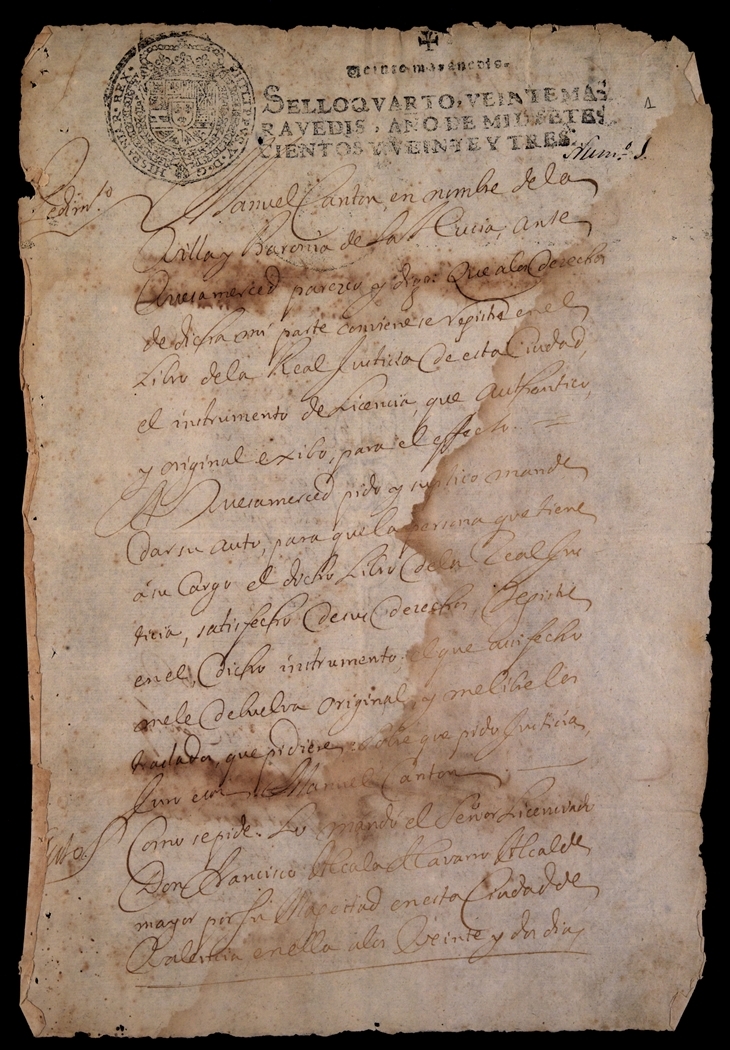 Veinte maravedis.
SELLO QVARTO, VEINTE MA-
RAVEDIS, AÑO DE MIL SETE-
CIENTOS Y VEINTE Y TRES.
1
Num.º 1.
PHILIPPVS V D G
HISPANIAR REX
Pedim.to
Manuel Canton, en nombre de la
Villa y Baronia de Sta Lucia, Ante
Vuesamerced parezco y digo: Que alos derechos
de dicha mi parte conviene se registre en el
Libro dela Real Justicia de esta Ciudad,
el instrumento de Licencia, que authentico,
y original exibo, para el effecto. =
A Vuesamerced pido y suplico mande
dar su auto, para que la persona que tiene
á su Cargo el dicho Libro dela Real Jus-
ticia, satisfecho de sus derechos, Registre
en el, dicho instrumento; el que assi fecho
me le debuelva original, y me libe los
traslados, que pidiere, sobre que pido Justicia,
Juro etta. Manuel Canton
Auto.
Como se pide. Lo mando el Señor Licenciado
Don Francisco Navarro Alcalde
mayor por su Magestad en esta Ciudad de
Valencia en ella alos Veinte y dos dias